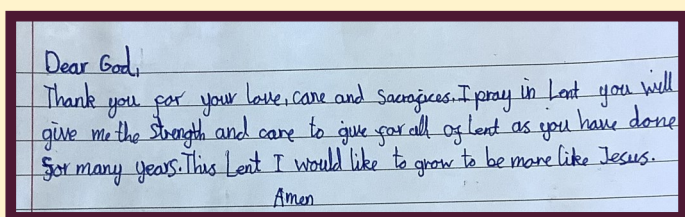 Dear God,
Thank you for your love, care and Sacrafices. I pray in Lent you will
give me the strength and care to give for all of Lent as you have done
for many years. This Lent I would like to grow to be more like Jesus.
Amen